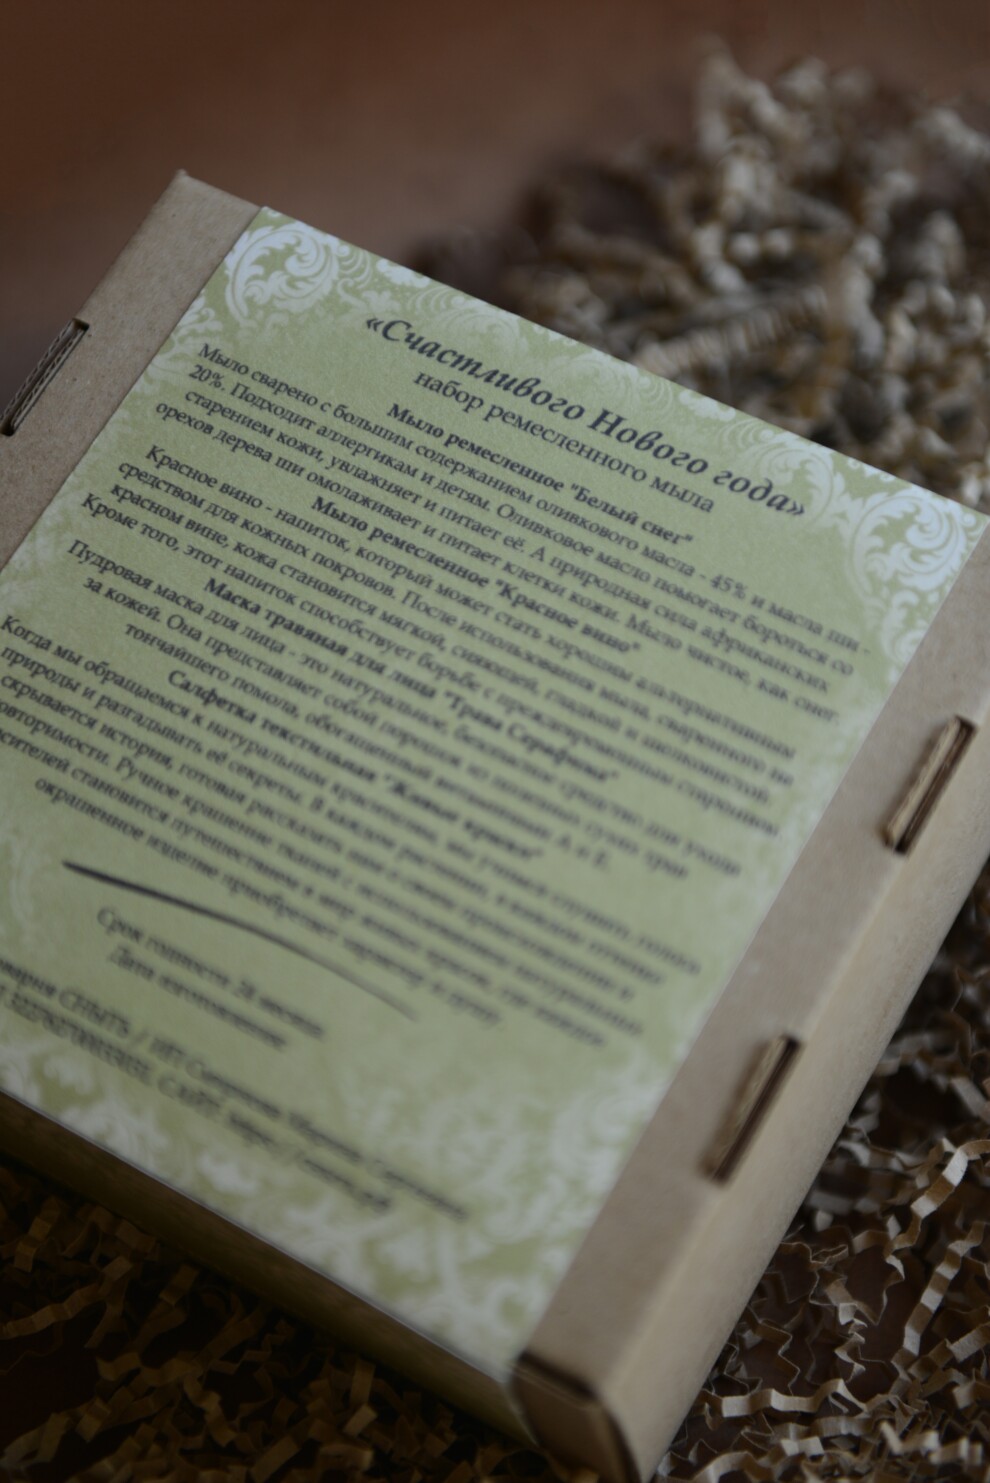 «Счастливого Нового года»
набор ремесленного мыла
Мыло ремесленное "Белый снег"
Мыло сварено с большим содержанием оливкового масла - 45% и масла ши -
20%. Подходит аллергикам и детям. Оливковое масло помогает бороться со
старением кожи, увлажняет и питает её. А природная сила африканских
орехов дерева ши омолаживает и питает клетки кожи. Мыло чистое, как снег.
Мыло ремесленное "Красное вино"
Красное вино - напиток, который может стать хорошим альтернативным
средством для кожных покровов. После использования мыла, сваренного на
красном вине, кожа становится мягкой, сияющей, гладкой и шелковистой.
Кроме того, этот напиток способствует борьбе с преждевременным старением
Маска травяная для лица "Трава Серафима"
Пудровая маска для лица - это натуральное, безопасное средство для ухода
за кожей. Она представляет собой порошок из полезных сухих трав
тончайшего помола, обогащенный витаминами А и Е.
Салфетка текстильная "Живые краски"
Когда мы обращаемся к натуральным красителям, мы учимся слушать голоса
природы и разгадывать её секреты. В каждом растении, в каждом оттенке
скрывается история, готовая рассказать нам о своем происхождении и
Ручное крашение тканей с использованием натуральных
становится путешествием в мир живых красок, где каждое
окрашенное изделие приобретает характер и душу.
Срок годности 24 месяца
Дата изготовления
СНЫТЬ / ИП
САЙТ: